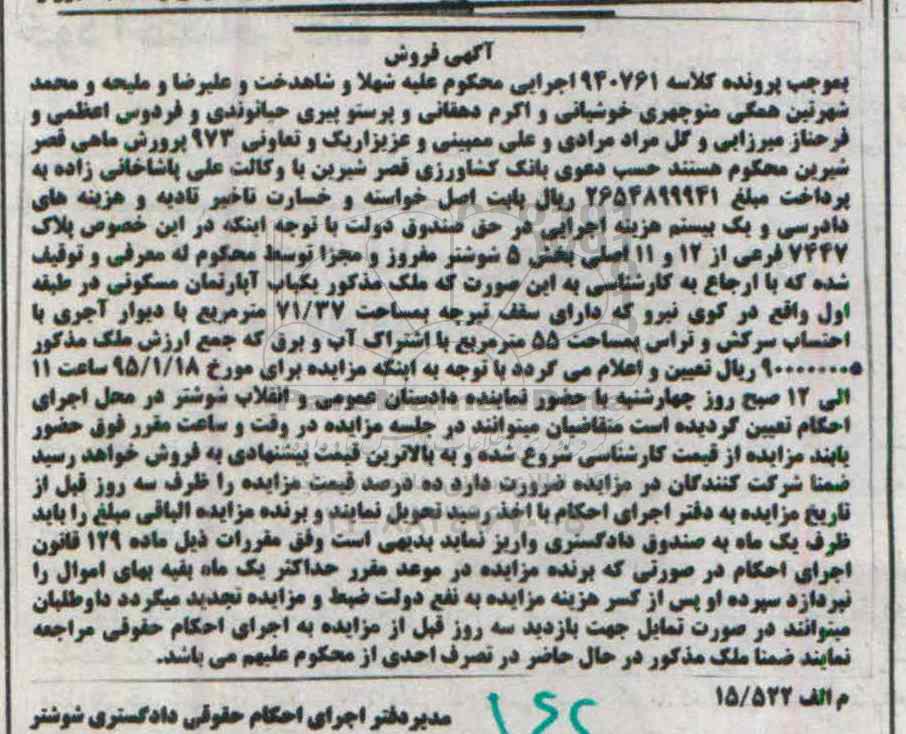 آگهی فروش
بموجب پرونده کلاسه ۹۴۰۷۶۱ اجرایی محکوم علیه شهلا و شاهدخت و علیرضا و ملیحه و محمد
شهرتین همگی منوچهری خوشیانی و اکرم دهقانی و پرستو پیری حیانوندی و فردوس اعظمی و
فرحناز میرزایی و گل مراد مرادی و علی ممبینی و عزیزاریک و تعاونی ۹۷۳ پرورش ماهی قصر
شیرین محکوم هستند حسب دعوی بانک کشاورزی قصر شیرین با وکالت علی پاشاخانی زاده به
پرداخت مبلغ ۲۶۵۴۸۹۹۹۴۱ ریال بابت اصل خواسته و خسارت تاخیر تادیه و هزینه های
دادرسی و یک بیستم هزینه اجرایی در حق صندوق دولت با توجه اینکه در این خصوص پلاک
۷۴۴۷ فرعی از ۱۲ و ۱۱ اصلی بخش ۵ شوشتر مفروز و مجزا توسط محکوم له معرفی و توقیف
شده که با ارجاع به کارشناسی به این صورت که ملک مذکور یکباب آپارتمان مسکونی در طبقه
اول واقع در کوی نیرو که دارای سقف تیرچه بمساحت ۷۱/۳۷ مترمربع با دیوار آجری با
احتساب سرکش و تراس بمساحت ۵۵ مترمربع با اشتراک آب و برق که جمع ارزش ملک مذکور
۹۰۰۰۰۰۰۰۰ ریال تعیین و اعلام می گردد با توجه به اینکه مزایده برای مورخ ۹۵/۱/۱۸ ساعت ۱۱
الی ۱۲ صبح روز چهارشنبه با حضور نماینده دادستان عمومی و انقلاب شوشتر در محل اجرای
احکام تعیین گردیده است متقاضیان میتوانند در جلسه مزایده در وقت و ساعت مقرر فوق حضور
یابند مزایده از قیمت کارشناسی شروع شده و به بالاترین قیمت پیشنهادی به فروش خواهد رسید
ضمنا شرکت کنندگان در مزایده ضرورت دارد ده درصد قیمت مزایده را ظرف سه روز قبل از
تاریخ مزایده به دفتر اجرای احکام با اخذ رسید تحویل نمایند و برنده مزایده الباقی مبلغ را باید
ظرف یک ماه به صندوق دادگستری واریز نماید بدیهی است وفق مقررات ذیل ماده ۱۲۹ قانون
اجرای احکام در صورتی که برنده مزایده در موعد مقرر حداکثر یک ماه بقیه بهای اموال را
نپردازد سپرده او پس از کسر هزینه مزایده به نفع دولت ضبط و مزایده تجدید میگردد داوطلبان
میتوانند در صورت تمایل جهت بازدید سه روز قبل از مزایده به اجرای احکام حقوقی مراجعه
نمایند ضمنا ملک مذکور در حال حاضر در تصرف احدی از محکوم علیهم می باشد.
م الف ۱۵/۵۲۲
مدیردفتر اجرای احکام حقوقی دادگستری شوشتر